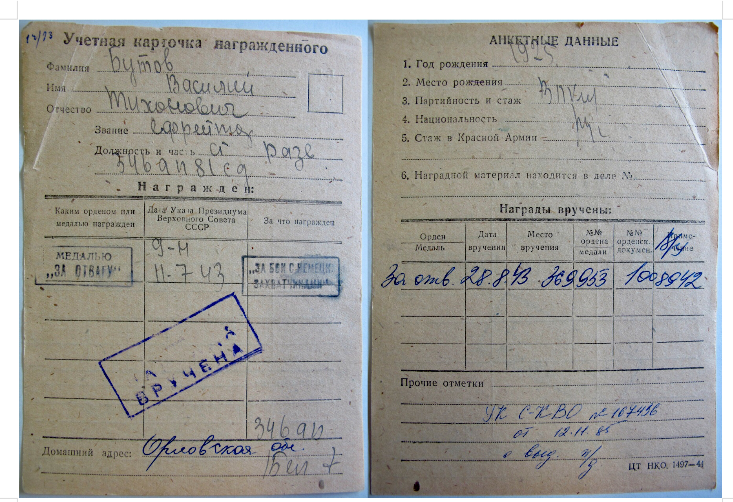 12/73
Учетная карточка награжденного
Фамилия Бутов
Имя Василий
Отчество Тихонович
Звание ефрейтор
Должность и часть ст разв
346 ап 81 сд
Награжден:
Каким орденом или медалью награжден
Дата Указа Президиума Верховного Совета СССР
За что награжден
МЕДАЛЬЮ
„ЗА ОТВАГУ“
9-Н
11.7.43
„ЗА БОИ С НЕМЕЦК.
ЗАХВАТЧИКАМИ“
ВРУЧЕНА
346 ап
Домашний адрес: Орловская обл.
АНКЕТНЫЕ ДАННЫЕ
1. Год рождения 19-5
2. Место рождения
3. Партийность и стаж ВЛКСМ
4. Национальность
5. Стаж в Красной Армии
6. Наградной материал находится в деле №
Награды вручены:
Орден
Медаль
Дата вручения
Место вручения
№№ ордена медали
№№ орденск. докумен.
Приме-
чание
За отв. 28.8.43 369953 1008942
Прочие отметки
ГК С-К-ВО № 167436
от 12.11.85
о выд.
ЦТ НКО. 1497—41